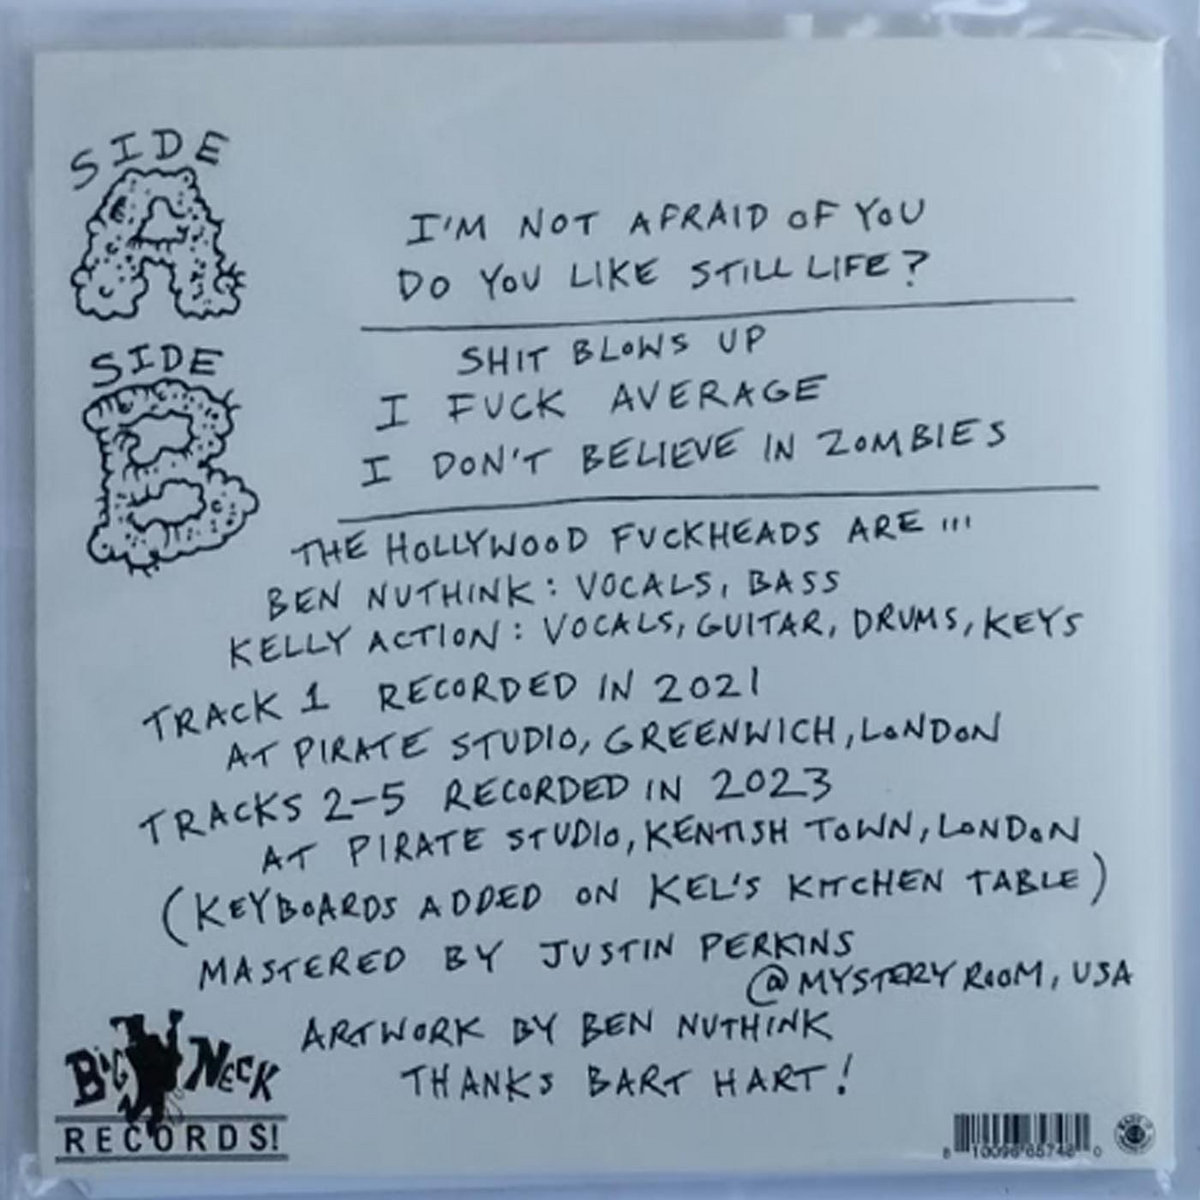 SIDE
A
I'M NOT AFRAID OF YOU
DO YOU LIKE STILL LIFE?
SIDE
B
SHIT BLOWS UP
I FUCK AVERAGE
I DON'T BELIEVE IN ZOMBIES
THE HOLLYWOOD FUCKHEADS ARE ...
BEN NUTHINK: VOCALS, BASS
KELLY ACTION: VOCALS, GUITAR, DRUMS, KEYS
TRACK 1 RECORDED IN 2021
AT PIRATE STUDIO, GREENWICH, LONDON
TRACKS 2-5 RECORDED IN 2023
AT PIRATE STUDIO, KENTISH TOWN, LONDON
(KEYBOARDS ADDED ON KEL'S KITCHEN TABLE)
MASTERED BY JUSTIN PERKINS
@MYSTERY ROOM, USA
ARTWORK BY BEN NUTHINK
THANKS BART HART!
BIG NECK
RECORDS!